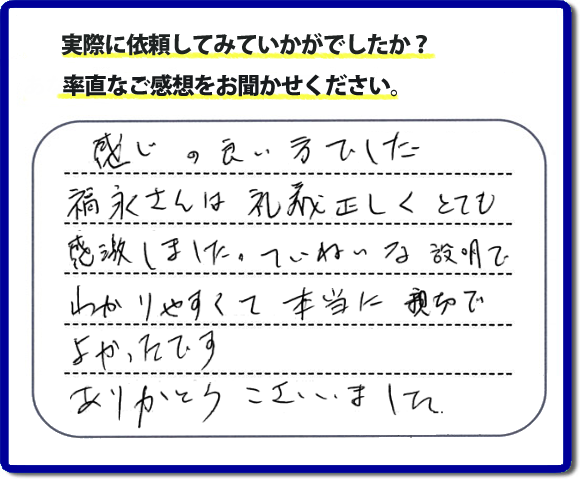 実際に依頼してみていかがでしたか？
率直なご感想をお聞かせください。
感じの良い方でした
福永さんは礼義正しくとても
感激しました。ていねいな説明で
わかりやすくて本当に親切で
よかったです
ありがとうございました